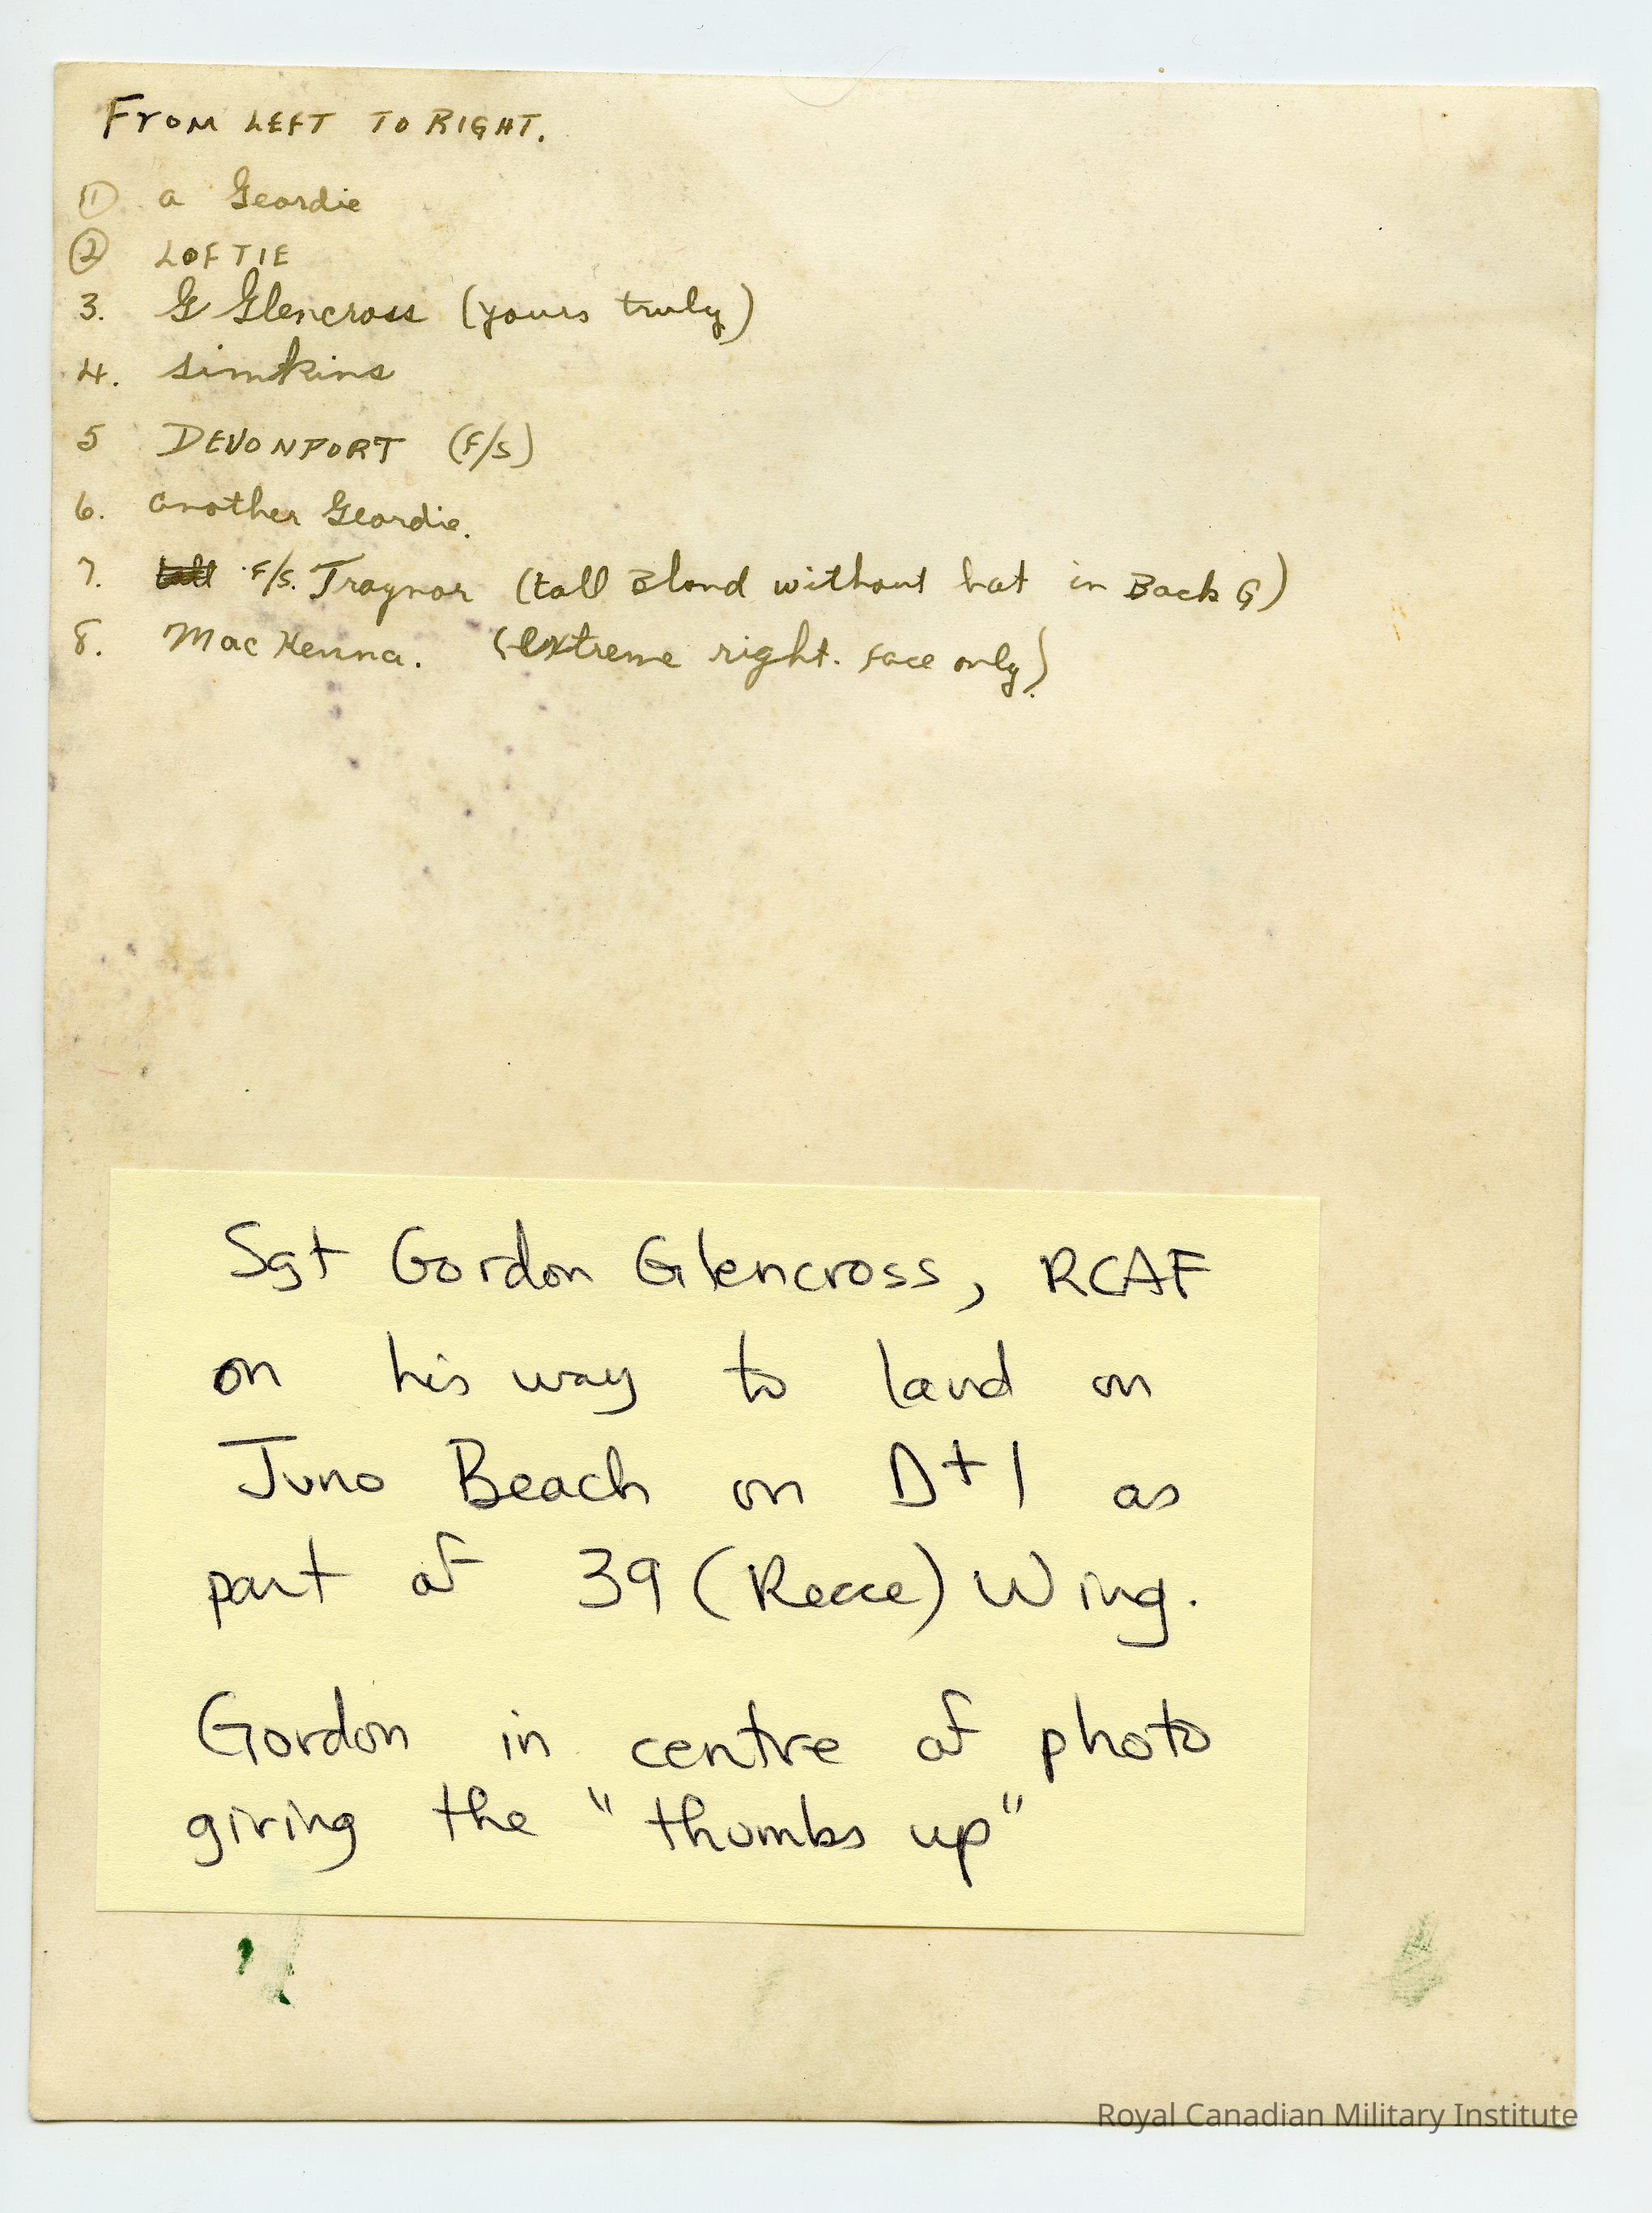 From LEFT TO RIGHT.
① a Geordie
② LOFTIE
3. G Glencross (yours truly)
4. Simkins
5 DEVONPORT (F/S)
6. another Geordie.
7. F/S. Traynor (tall Blond without hat in Back G)
8. MacKenna. (extreme right. face only).
Sgt Gordon Glencross, RCAF
on his way to land on
Juno Beach on D+1 as
part of 39 (Recce) Wing.
Gordon in centre of photo
giving the "thumbs up"
Royal Canadian Military Institute